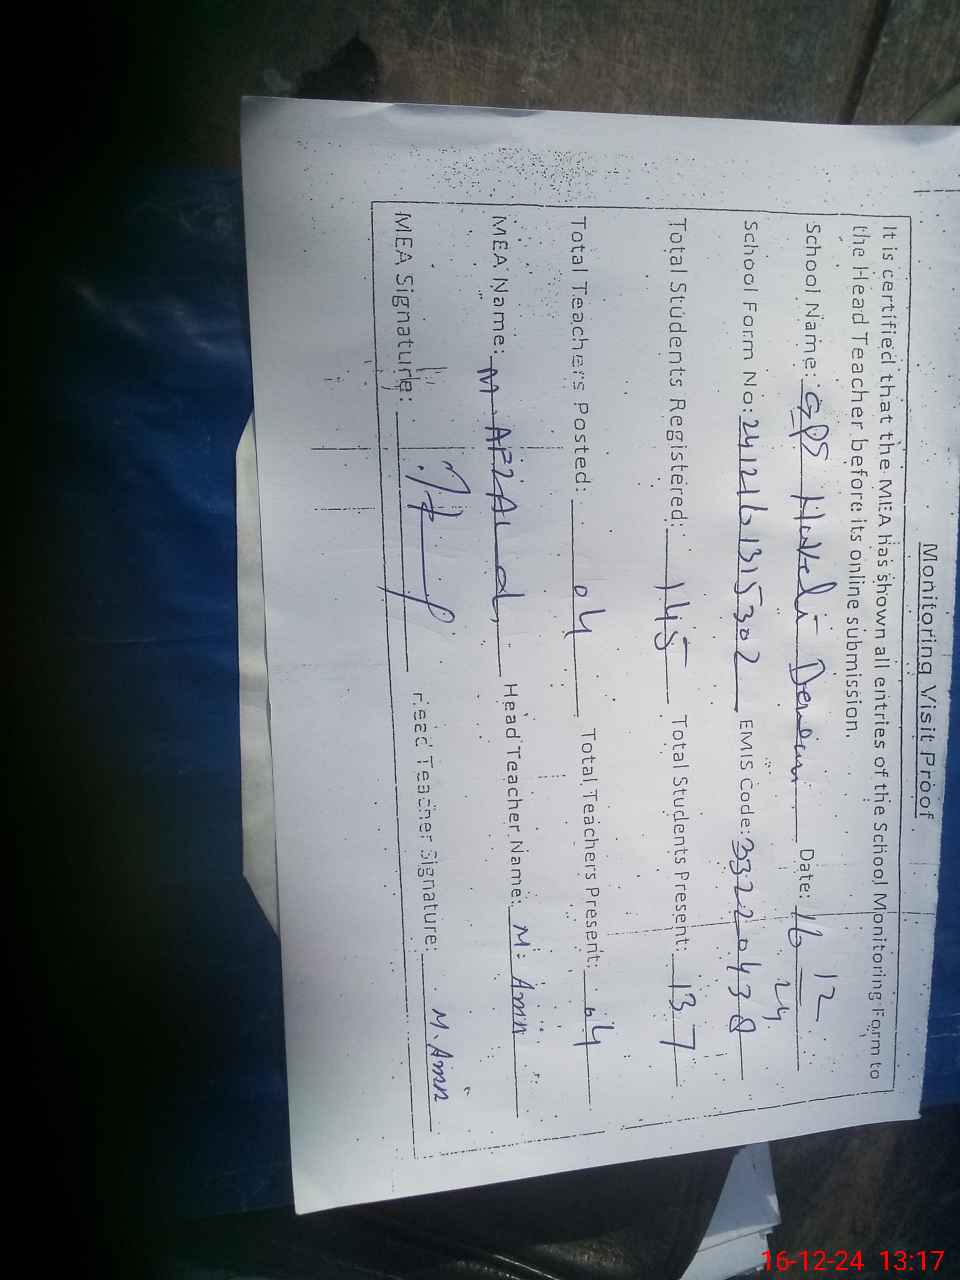 Monitoring Visit Proof
It is certified that the MEA has shown all entries of the School Monitoring Form to
the Head Teacher before its online submission.
School Name: GPS Haveli Date: 16 12 24
School Form No: 2412161315302 EMIS Code: 33220438
Total Students Registered: 145 Total Students Present: 137
Total Teachers Posted: 04 Total Teachers Present: 04
MEA Name: M. AFZAL Head Teacher Name: M. Amin
MEA Signature: Head Teacher Signature: M. Amin
16-12-24 13:17